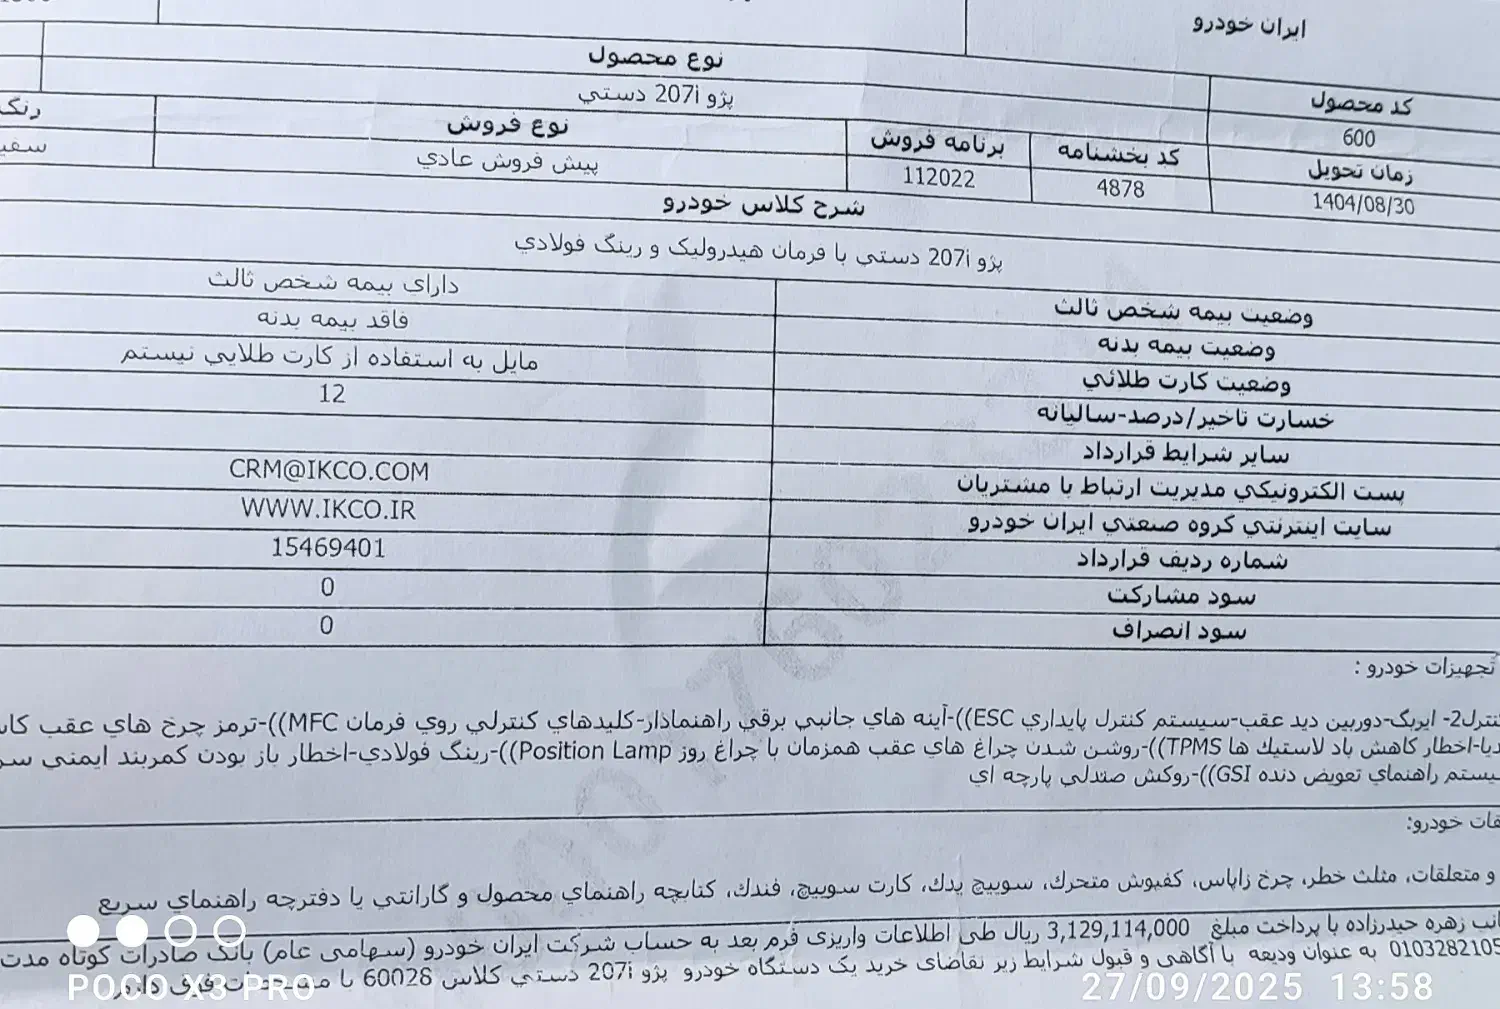 ایران خودرو
نوع محصول
کد محصول
پژو 207i دستي
600
رنگ
نوع فروش
برنامه فروش
کد بخشنامه
زمان تحویل
پیش فروش عادي
112022
4878
1404/08/30
شرح کلاس خودرو
پژو 207i دستي با فرمان هیدرولیک و رینگ فولادي
وضعیت بیمه شخص ثالث
داراي بیمه شخص ثالث
وضعیت بیمه بدنه
فاقد بیمه بدنه
وضعیت کارت طلائي
مایل به استفاده از کارت طلايي نیستم
خسارت تاخیر/درصد-سالیانه
12
سایر شرایط قرارداد
پست الکترونیکي مدیریت ارتباط با مشتریان
CRM@IKCO.COM
سایت اینترنتي گروه صنعتي ایران خودرو
WWW.IKCO.IR
شماره ردیف قرارداد
15469401
سود مشارکت
0
سود انصراف
0
تجهیزات خودرو :
2- ایربگ-دوربین دید عقب-سیستم کنترل پایداري ESC))-آینه هاي جانبي برقي راهنمادار-کلیدهاي کنترلي روي فرمان MFC))-ترمز چرخ هاي عقب
اخطار کاهش باد لاستیك ها TPMS))-روشن شدن چراغ هاي عقب همزمان با چراغ روز Position Lamp))-رینگ فولادي-اخطار باز بودن کمربند ایمني
راهنماي تعویض دنده GSI))-روکش صندلي پارچه اي
خودرو:
و متعلقات، مثلث خطر، چرخ زاپاس، کفپوش متحرك، سوییچ یدك، کارت سوییچ، فندك، کتابچه راهنماي محصول و گارانتي یا دفترچه راهنماي سریع
زهره حیدرزاده با پرداخت مبلغ 3,129,114,000 ریال طی اطلاعات واریزی فرم بعد به حساب شرکت ایران خودرو (سهامی عام) بانک صادرات کوتاه مدت
0103282105 به عنوان ودیعه با آگاهی و قبول شرایط زیر تقاضای خرید یک دستگاه خودرو پژو 207i دستي کلاس 60028 با مشخصات فوق دارم
POCO X3 PRO
27/09/2025 13:58